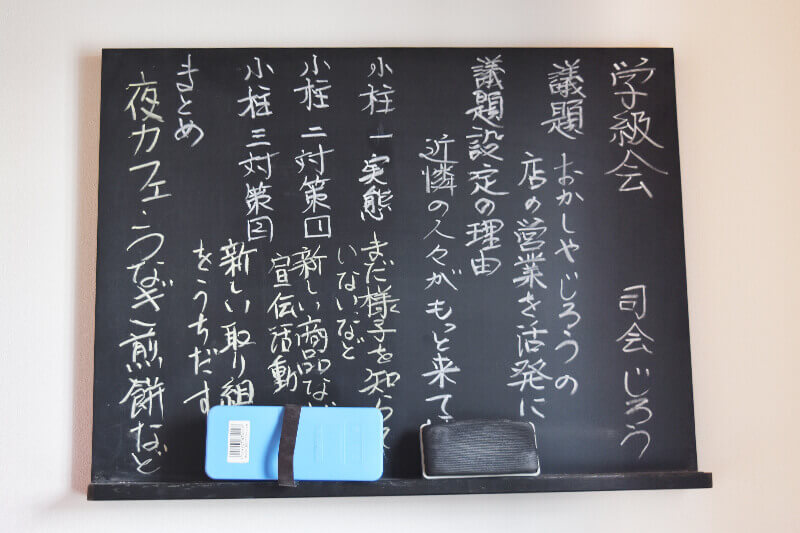 学級会 司会 じろう
議題 おかしやじろうの
店の営業を活発に
議題設定の理由
近憐の人々がもっと来て
小柱 一 実態 まだ様子を知らて
いない など
小柱 二 対策1 新しい商品など
宣伝活動
小柱 三 対策2 新しい取り組
をうちだす
まとめ
夜カフェ・うなぎ煎餅など